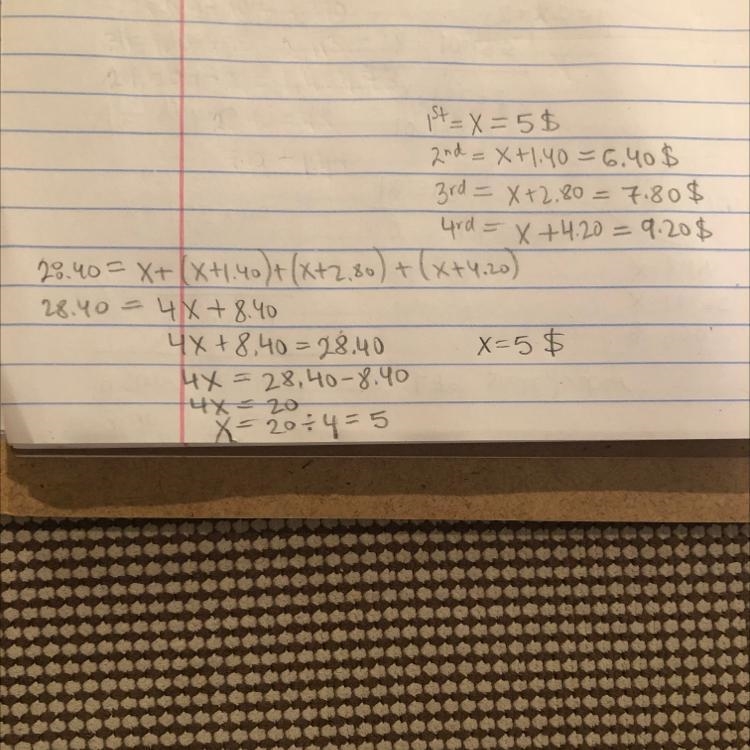 1st = x = 5$
2nd = x+1.40 = 6.40$
3rd = x+2.80 = 7.80$
4rd = x+4.20 = 9.20$
28.40 = x+(x+1.40)+(x+2.80)+(x+4.20)
28.40 = 4x+8.40
4x+8.40=28.40 x=5$
4x = 28.40-8.40
4x = 20
x = 20÷4=5